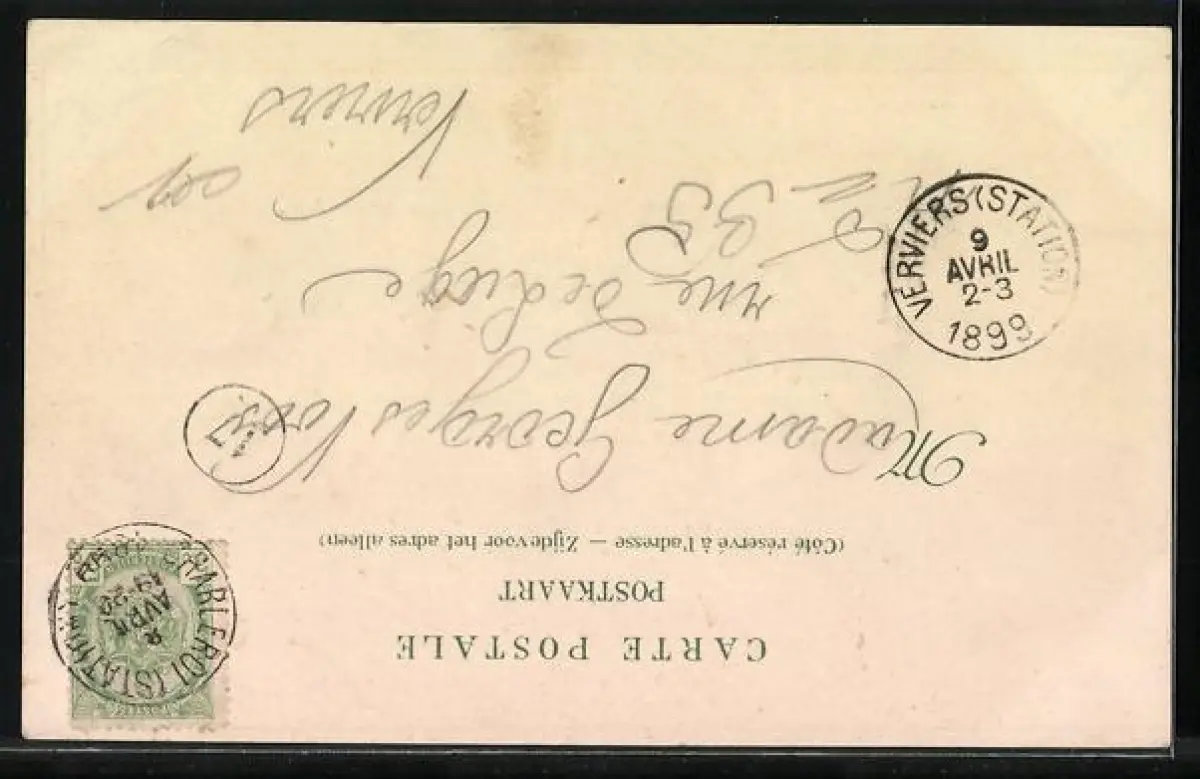 CARTE POSTALE
POSTKAART
(Côté réservé à l'adresse — Zijde voor het adres alleen)
Madame Georges
rue de Liège
N° 35
Verviers
CHARLEROI (STATION)
8
AVRIL
VERVIERS (STATION)
9
AVRIL
2-3
1899